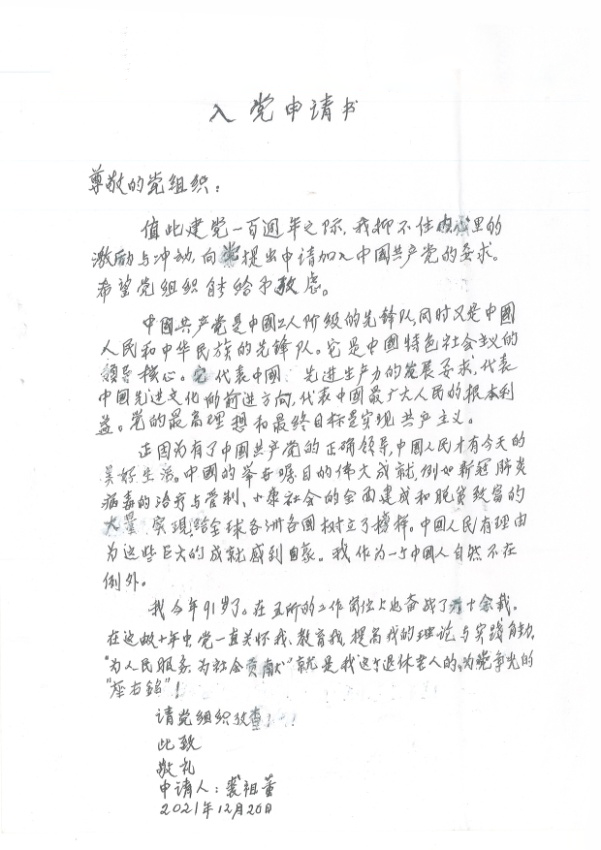 入党申请书
尊敬的党组织：
值此建党一百週年之际，我抑不住内心里的
激励与冲动，向党提出申请加入中国共产党的要求。
希望党组织能给予攷虑。
中國共产党是中國工人阶级的先锋队，同时又是中國
人民和中华民族的先锋队。它是中國特色社会主义的
领导核心。它代表中國先进生产力的发展要求，代表
中國先进文化的前进方向，代表中國最广大人民的根本利
益。党的最高理想和最终目标是实现共产主义。
正因为有了中國共产党的正确领导，中國人民才有今天的
美好生活。中國的举世瞩目的伟大成就，例如新冠肺炎
病毒的治疗与管制、小康社会的全面建成和脱贫致富的
大量实现，给全球各洲各國树立了榜样。中國人民有理由
为这些巨大的成就感到自豪。我作为一个中國人自然不在
例外。
我今年91岁了。在五所的工作岗位上也奋战了十余载。
在这数十年中，党一直关怀我、教育我，提高我的理论与实践能动，
“为人民服务，为社会贡献”就是我这个退休老人的，为党争光的
“座右銘”！
请党组织攷查！
此致
敬礼
申请人：裘祖
2021年12月20日